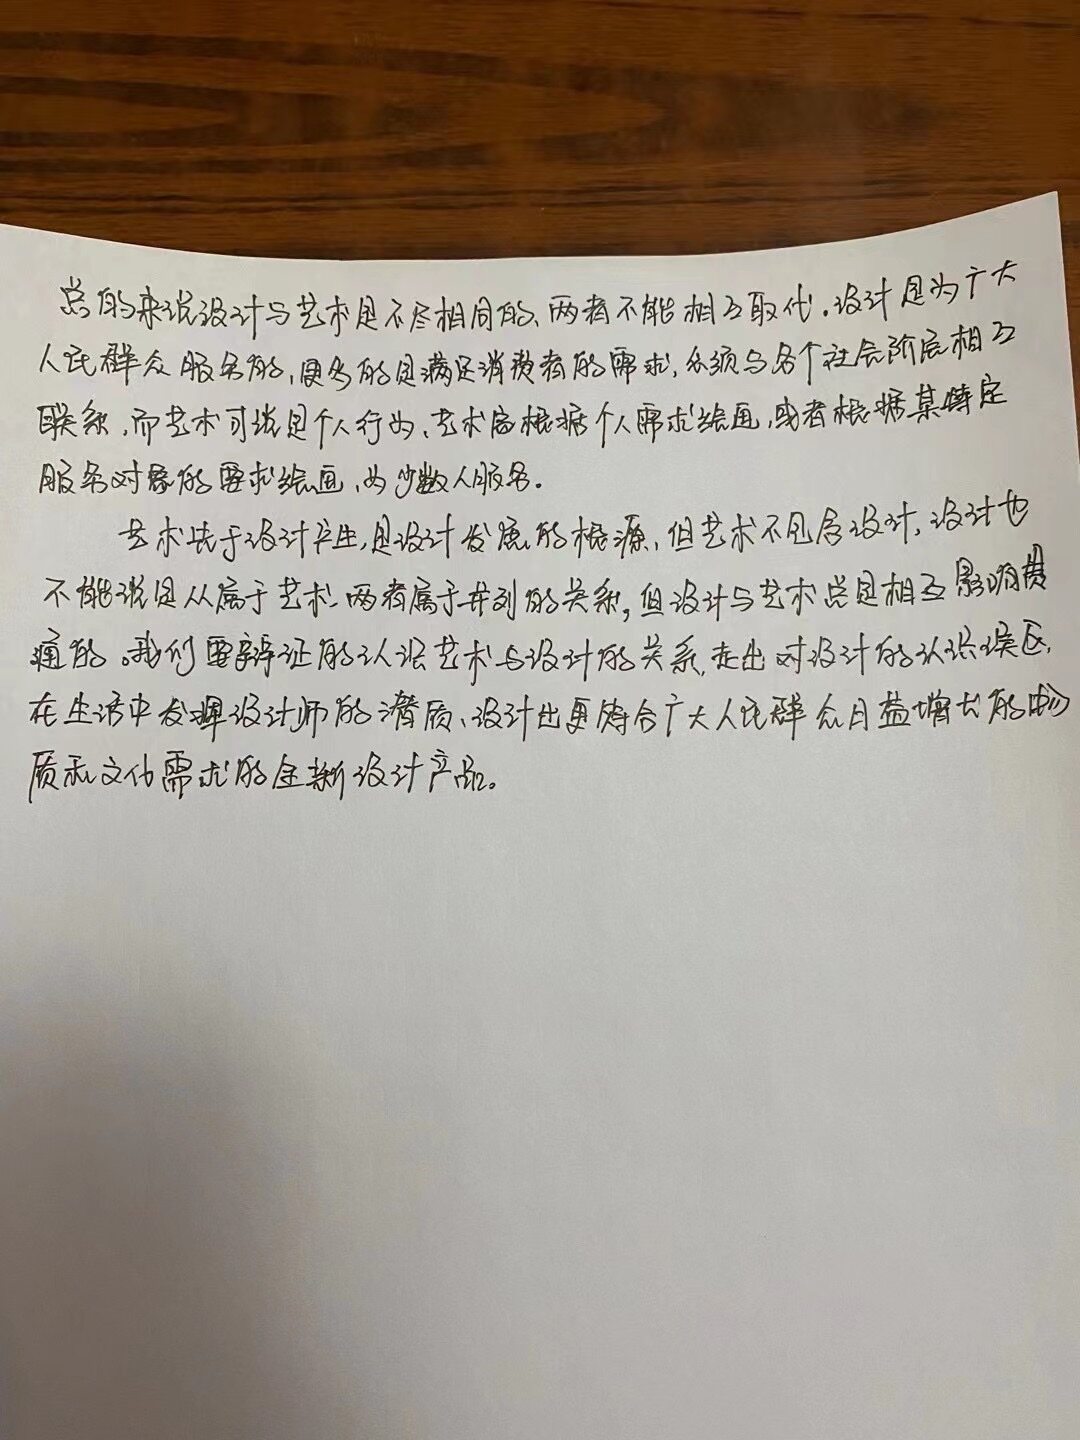 总的来说设计与艺术是不尽相同的、两者不能相互取代.设计是为广大
人民群众服务的,更多的是满足消费者的需求,必须与各个社会阶层相互
联系,而艺术可说是个人行为、艺术家根据个人需求绘画,或者根据某特定
服务对象的要求绘画、为少数人服务.
艺术先于设计产生,是设计发展的根源,但艺术不包含设计,设计也
不能说是从属于艺术、两者属于并列的关系,但设计与艺术总是相互影响贯
通的。我们要辩证的认识艺术与设计的关系,走出对设计的认识误区,
在生活中发挥设计师的潜质、设计出更符合广大人民群众日益增长的物
质和文化需求的全新设计产品。